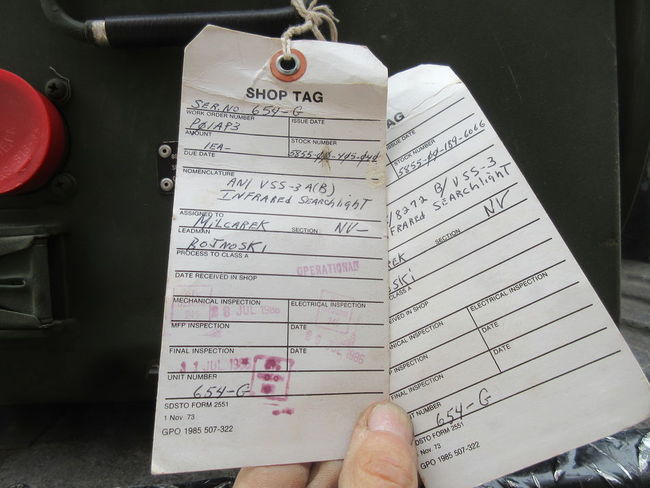 SHOP TAG
SER. NO. 654-G
WORK ORDER NUMBER ISSUE DATE
PØ1AP3
AMOUNT STOCK NUMBER
1EA-
DUE DATE
NOMENCLATURE
AN/VSS-3A(B)
INFRARED SEARCHLIGHT
ASSIGNED TO
MILCAREK SECTION NV-
LEADMAN
BOJNOSKI
PROCESS TO CLASS A
OPERATIONAL
DATE RECEIVED IN SHOP
MECHANICAL INSPECTION ELECTRICAL INSPECTION
8 JUL 1986
MFP INSPECTION DATE
FINAL INSPECTION DATE
UNIT NUMBER
654-G
SDSTO FORM 2551
1 Nov 73
GPO 1985 507-322
AG
ISSUE DATE
STOCK NUMBER
5855-ØØ-189-6066
/8272 B/VSS-3
FRARED SEARCHLIGHT
SECTION NV
REK
SKI
CLASS A
EIVED IN SHOP
ANICAL INSPECTION ELECTRICAL INSPECTION
INSPECTION DATE
FINAL INSPECTION DATE
NUMBER
654-G
SDSTO FORM 2551
Nov. 73
GPO 1985 507-322